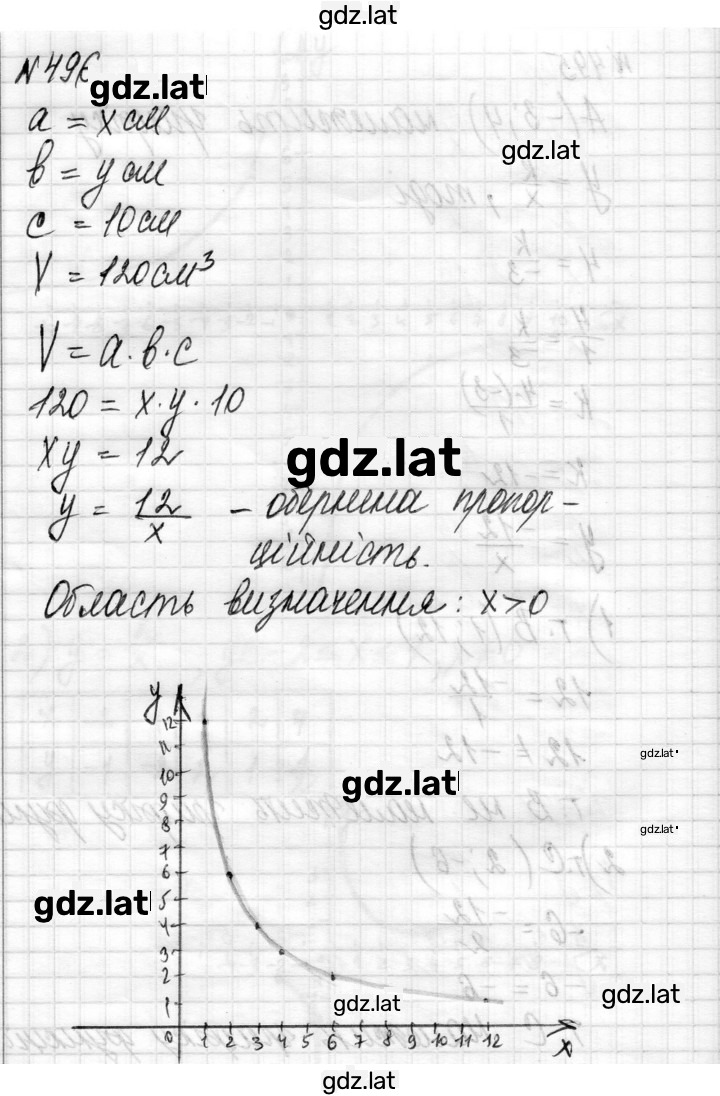 gdz.lat
№ 496
gdz.lat
a = x см
gdz.lat
в = y см
c = 10 см
V = 120 см³
V = a · в · c
120 = x · y · 10
xy = 12
gdz.lat
y = 12/x – обернена пропор-
ційність.
Область визначення: x > 0
y
12
11
10
9
8
7
6
5
4
3
2
1
0 1 2 3 4 5 6 7 8 9 10 11 12 x
gdz.lat
gdz.lat
gdz.lat
gdz.lat
gdz.lat
gdz.lat
gdz.lat